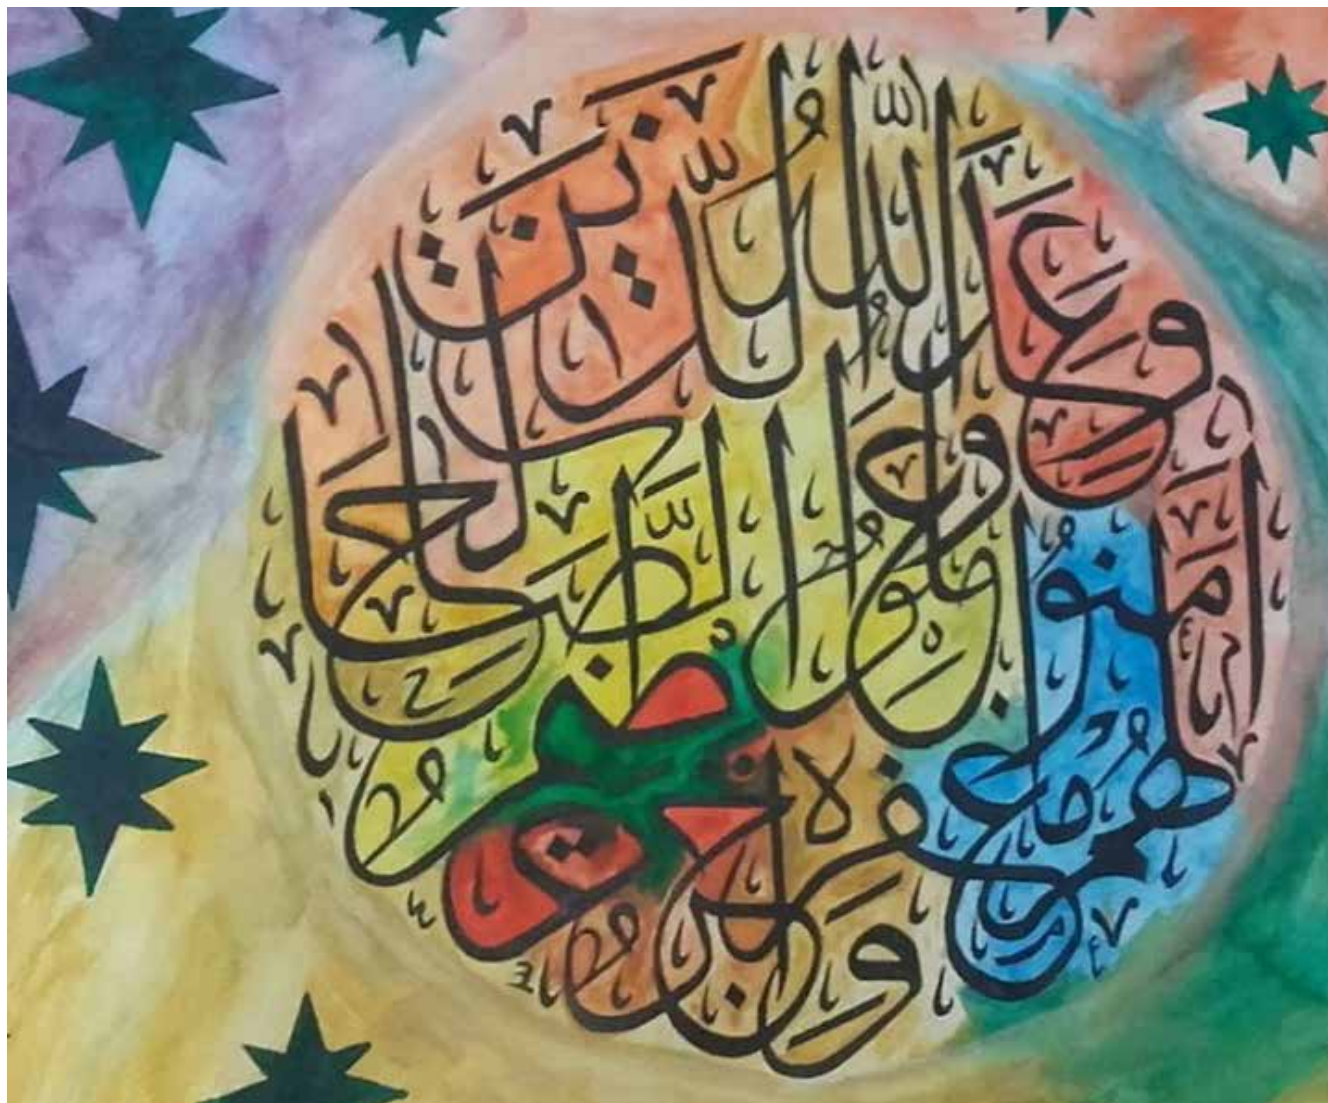 وَعَدَ اللَّهُ الَّذِينَ
آمَنُوا وَعَمِلُوا الصَّالِحَاتِ
لَهُم مَّغْفِرَةٌ وَأَجْرٌ عَظِيمٌ